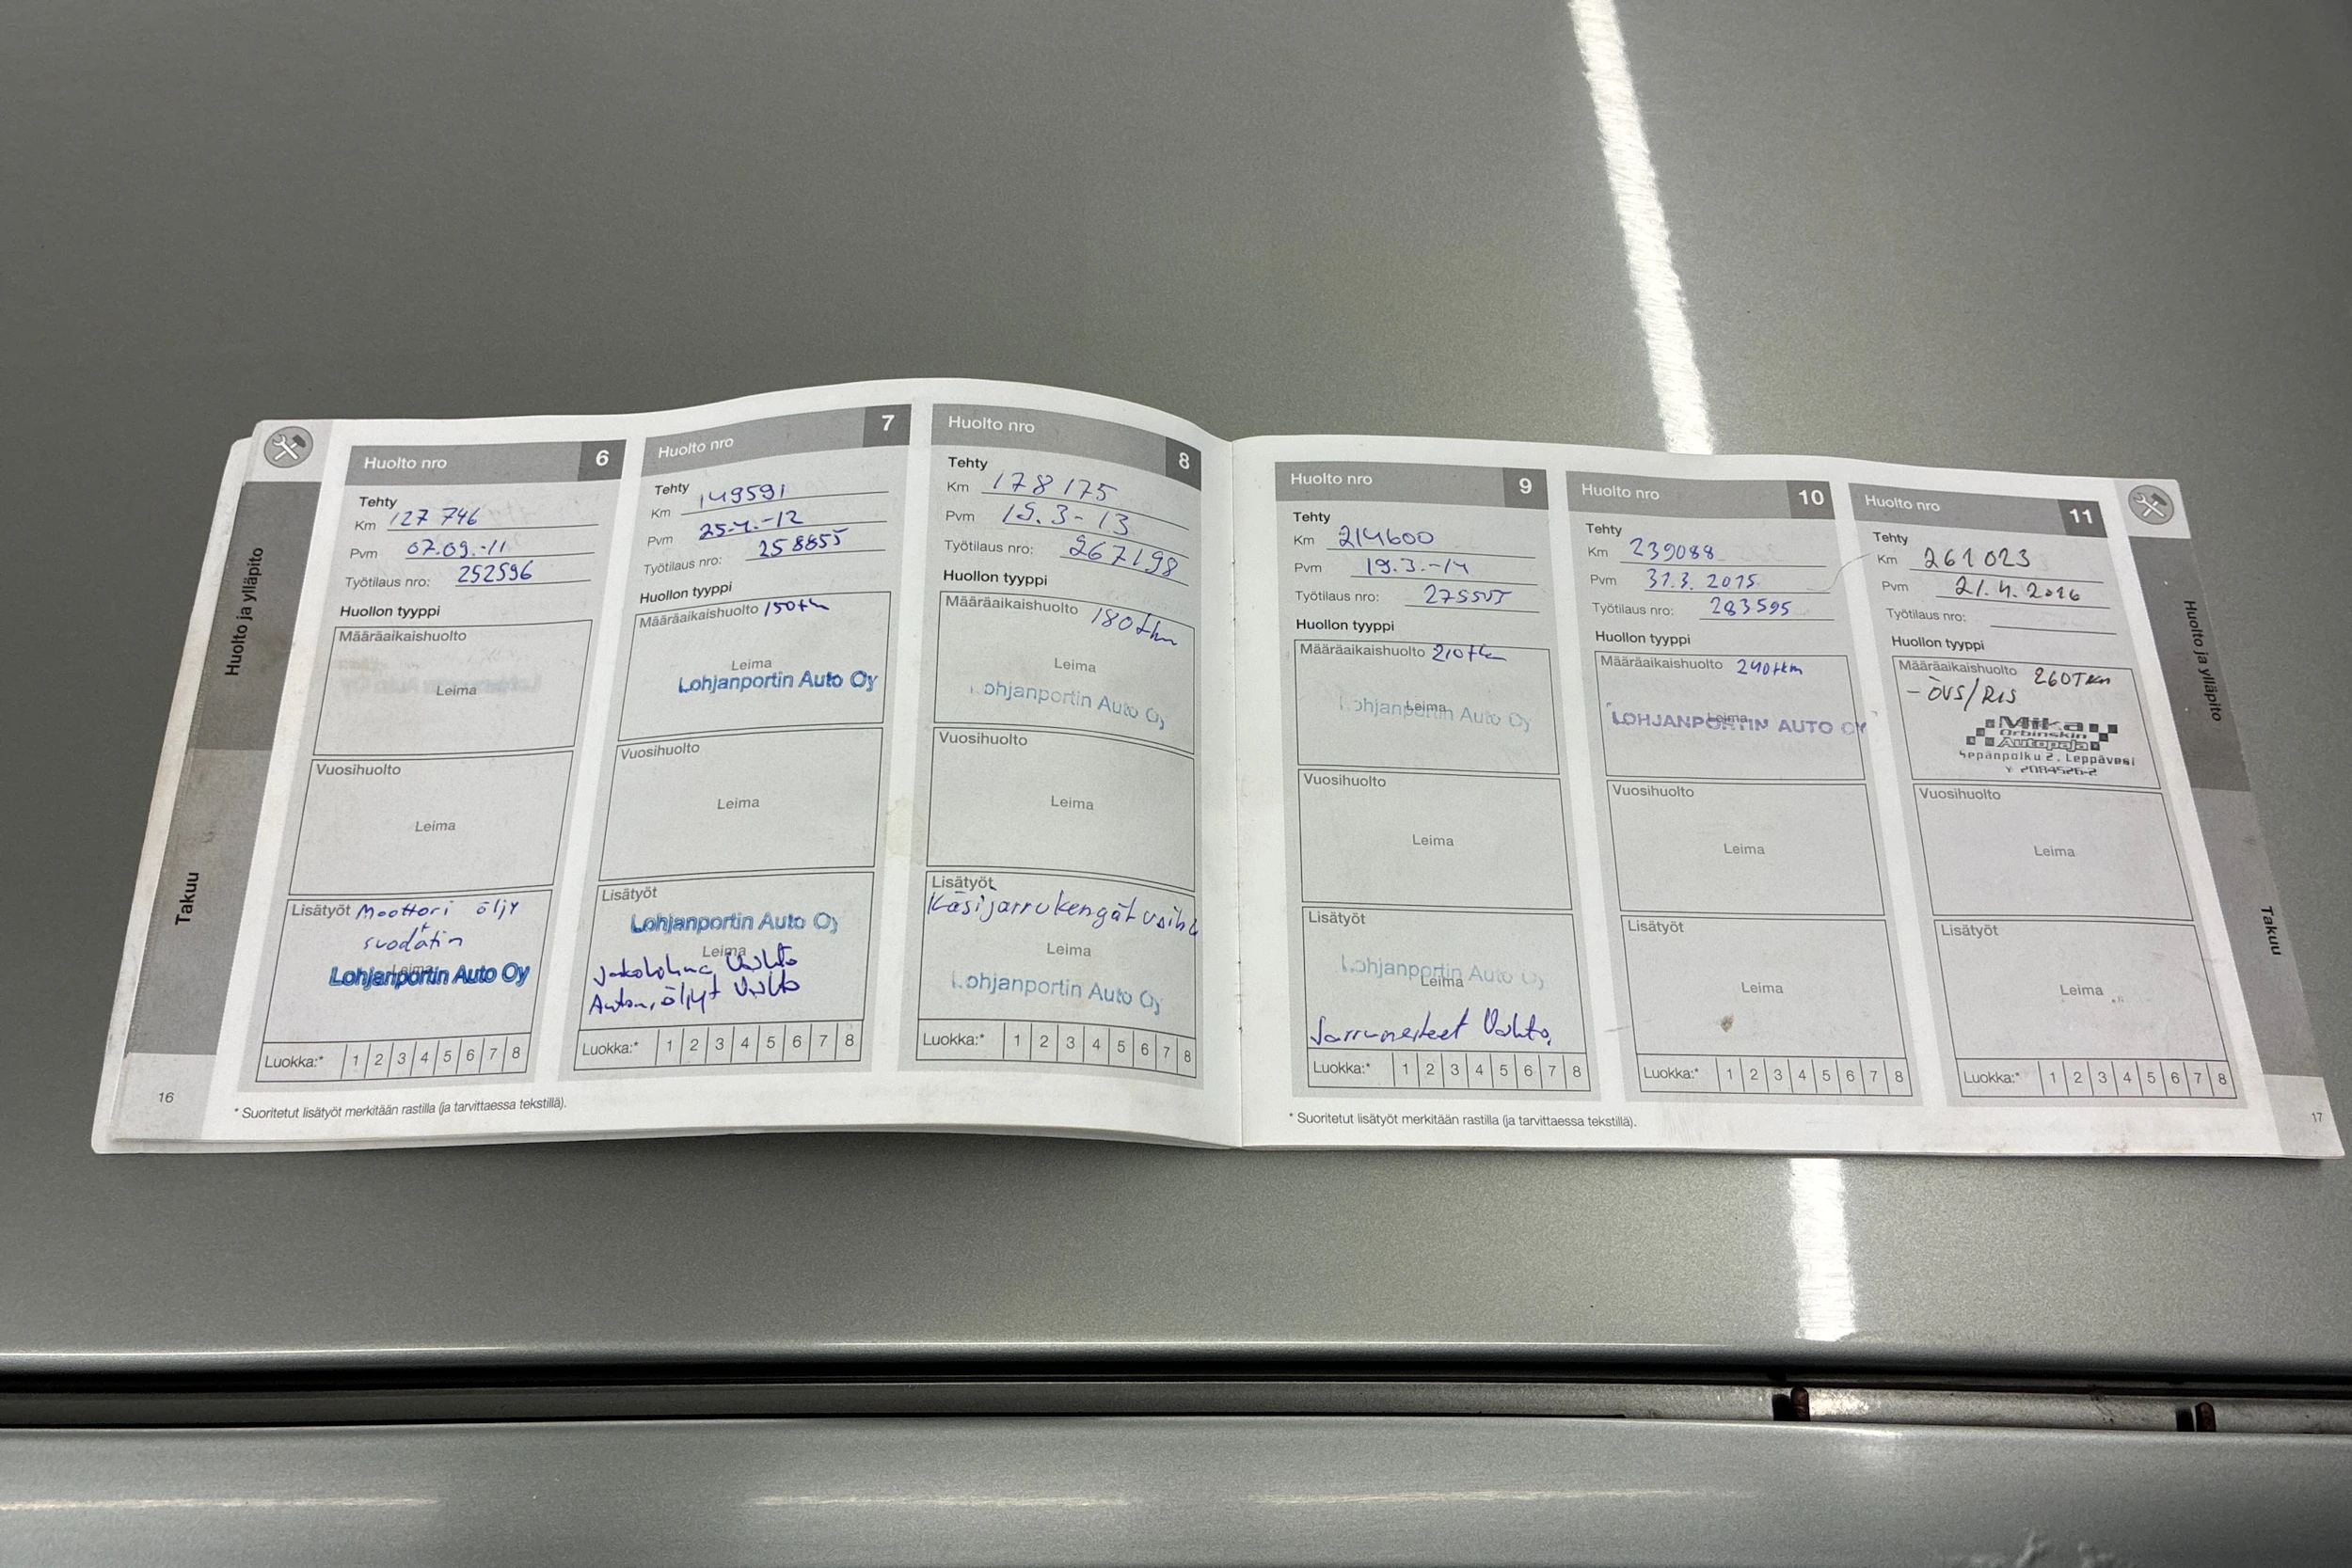 Huolto ja ylläpito
Takuu
16
Huolto nro 6
Tehty
Km 127 746
Pvm 07.09.-11
Työtilaus nro: 252596
Huollon tyyppi
Määräaikaishuolto
Leima
Vuosihuolto
Leima
Lisätyöt Moottori öljy
+
suodatin
Leima
Lohjanportin Auto Oy
Luokka:* 1 2 3 4 5 6 7 8
Huolto nro 7
Tehty
Km 149591
Pvm 25.4.-12
Työtilaus nro: 258855
Huollon tyyppi
Määräaikaishuolto 150tkm
Leima
Lohjanportin Auto Oy
Vuosihuolto
Leima
Lisätyöt
Lohjanportin Auto Oy
Leima
Jakohihna Vaihto
Autom.öljyt Vaihto
Luokka:* 1 2 3 4 5 6 7 8
Huolto nro 8
Tehty
Km 178175
Pvm 15.3-13
Työtilaus nro: 267198
Huollon tyyppi
Määräaikaishuolto 180tkm
Leima
Lohjanportin Auto Oy
Vuosihuolto
Leima
Lisätyöt
Käsijarrukengät vaih
Leima
Lohjanportin Auto Oy
Luokka:* 1 2 3 4 5 6 7 8
* Suoritetut lisätyöt merkitään rastilla (ja tarvittaessa tekstillä).
Huolto nro 9
Tehty
Km 214600
Pvm 19.3.-14
Työtilaus nro:
Huollon tyyppi
Määräaikaishuolto 210tkm
Leima
Lohjanportin Auto Oy
Vuosihuolto
Leima
Lisätyöt
Lohjanportin Auto Oy
Leima
Jarrunesteet Vaihto
Luokka:* 1 2 3 4 5 6 7 8
Huolto nro 10
Tehty
Km 239088
Pvm 31.3.2015
Työtilaus nro: 283595
Huollon tyyppi
Määräaikaishuolto 240tkm
Leima
LOHJANPORTIN AUTO OY
Vuosihuolto
Leima
Lisätyöt
Leima
Luokka:* 1 2 3 4 5 6 7 8
Huolto nro 11
Tehty
Km 261 023
Pvm 21.4.2016
Työtilaus nro:
Huollon tyyppi
Määräaikaishuolto 260Tkm
- ÖVS/RIS
Mika
Orbinskin
Autopaja
Sepänpolku 2, Leppävesi
Y 2084526-2
Vuosihuolto
Leima
Lisätyöt
Leima
Luokka:* 1 2 3 4 5 6 7 8
* Suoritetut lisätyöt merkitään rastilla (ja tarvittaessa tekstillä).
Huolto ja ylläpito
Takuu
17